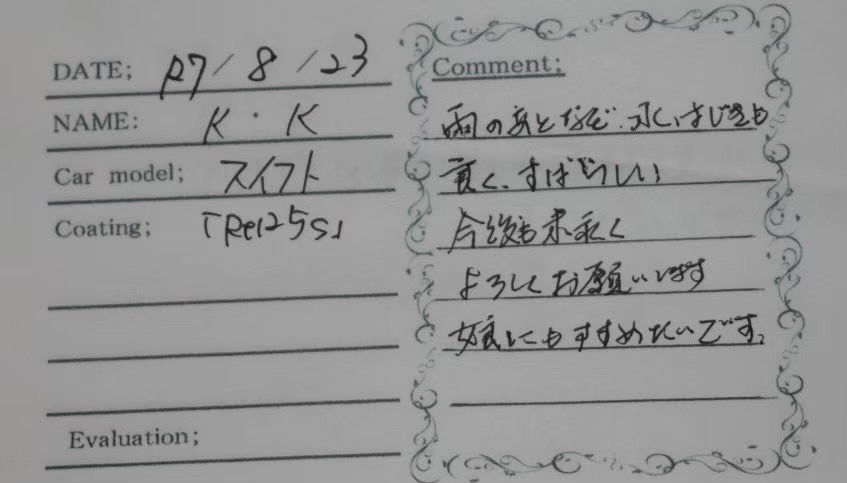 DATE; R7/8/23
NAME: K・K
Car model; スイフト
Coating; 「Re125s」
Evaluation;
Comment;
雨のあとなど、水はじきも
良く、すばらしい
今後も末永く
よろしくお願いします
娘にもすすめたいです。